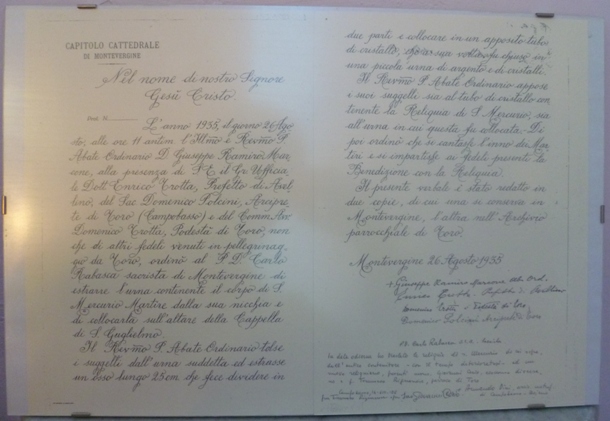 CAPITOLO CATTEDRALE
DI MONTEVERGINE
Nel nome di nostro Signore
Gesù Cristo
Prot. N.
L'anno 1935, il giorno 26 Ago
sto, alle ore 11 antim. l'Ill.mo e Rev.mo P.
Abate Ordinario D. Giuseppe Ramiro Mar
cone, alla presenza di S. E. il Gr. Ufficia
le Dott. Enrico Trotta, Prefetto di Avel
lino, del Sac. Domenico Polcini, Arcipre
te di Toro (Campobasso) e del Comm. Avv.
Domenico Trotta, Podestà di Toro, non
chè di altri fedeli venuti in pellegrinag
gio da Toro, ordinò al P. D. Carlo
Rabasca sacrista di Montevergine di
estrarre l'urna contenente il corpo di S.
Mercurio Martire dalla sua nicchia e
di collocarla sull'altare della Cappella
di S. Guglielmo.
Il Rev.mo P. Abate Ordinario tolse
i suggelli dall'urna suddetta ed estrasse
un osso lungo 25 cm. che fece dividere in
due parti e collocare in un apposito tubo
di cristallo,
piccola urna di argento e di cristallo.
Il Rev.mo P. Abate Ordinario appose
i suoi suggelli sia al tubo di cristallo con
tenente la Reliquia di S. Mercurio, sia
all'urna in cui questa fu collocata. Di
poi ordinò che si cantasse l'inno dei Mar
tiri e si impartisse ai fedeli presenti la
Benedizione con la Reliquia.
Il presente verbale è stato redatto in
due copie, di cui una si conserva in
Montevergine, l'altra nell'Archivio
parrocchiale di Toro.
Montevergine 26 Agosto 1935
+ Giuseppe Ramiro Marcone ab. Ord.
Enrico Trotta
Domenico Trotta - Podestà di Toro
Domenico Polcini Arciprete Toro